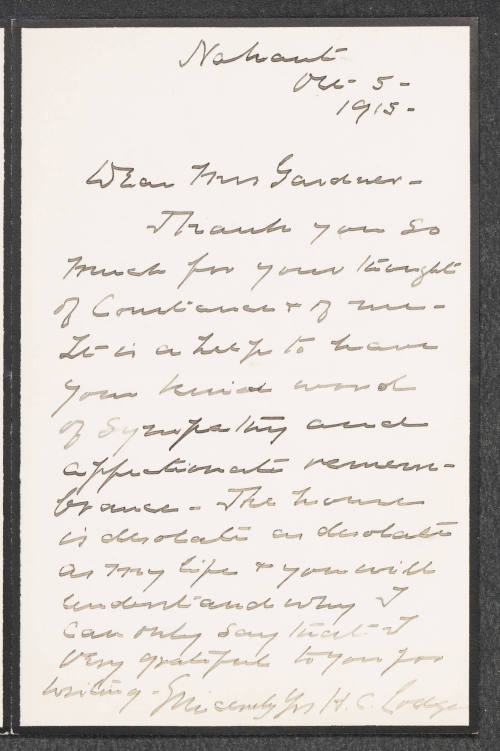 Nahant
Oct- 5-
1915-
Dear Mrs Gardner-
Thank you so
much for your thought
of Constance & of me-
It is a help to have
your kind word
of sympathy and
affectionate remem-
brance- The house
is desolate as desolate
as my life & you will
understand why I
can only say that I
very grateful to you for
writing- Sincerely Yrs H. C. Lodge